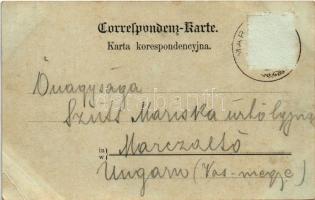 Correspondenz-Karte.
Karta korespondencyjna.
Őnagysága
Szűts Mariska úrhölgynek
in
w
Marczaltő
Ungarn (Vas-megye)